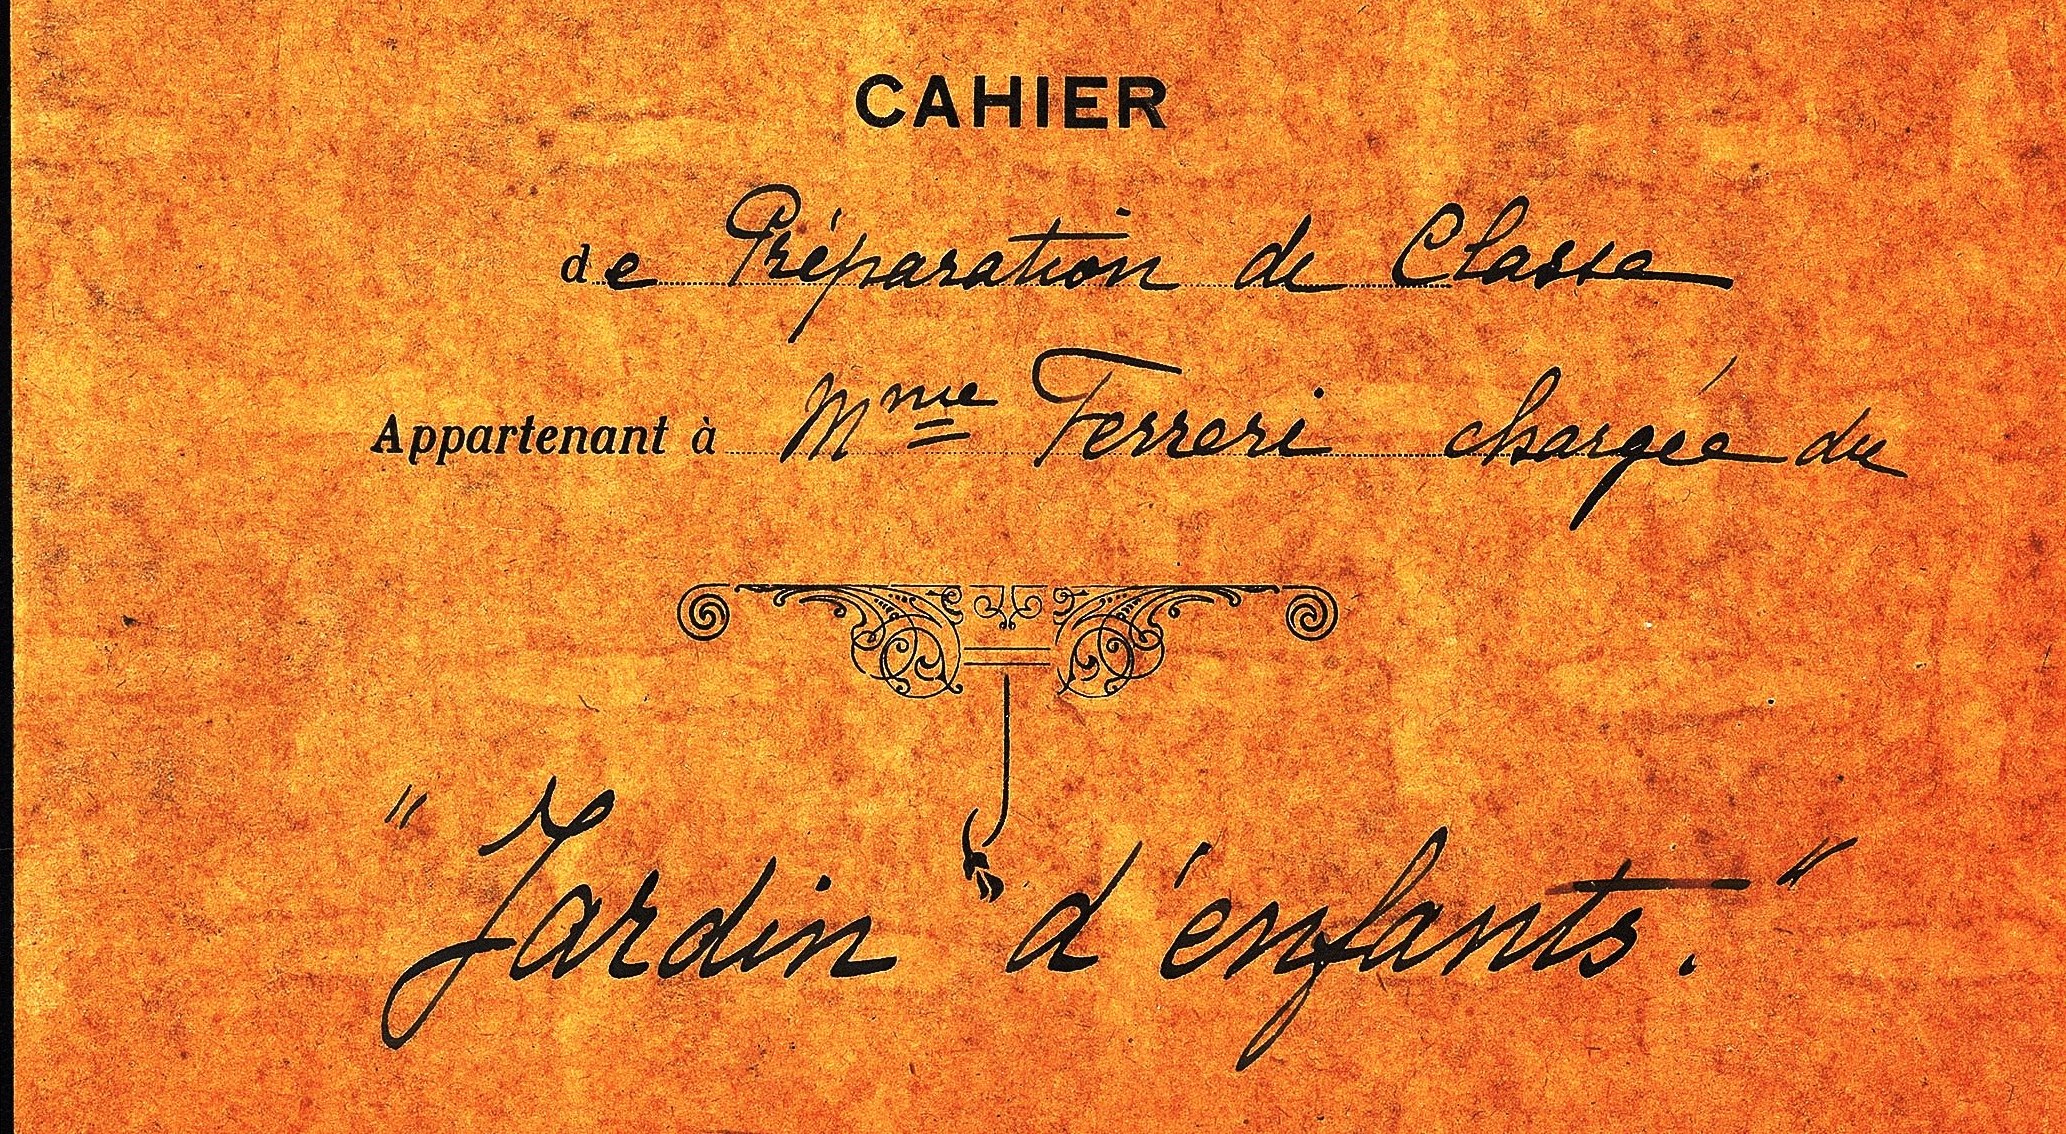 CAHIER
de Préparation de Classe
Appartenant à Mme Ferreri chargée du
"Jardin d'enfants."